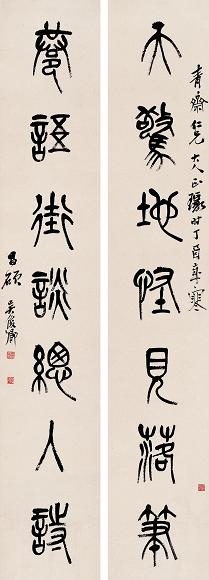 天驚地怪見落筆
青齋仁兄大人正瑑時丁酉寒
巷語街談總入詩
昌碩吳俊卿